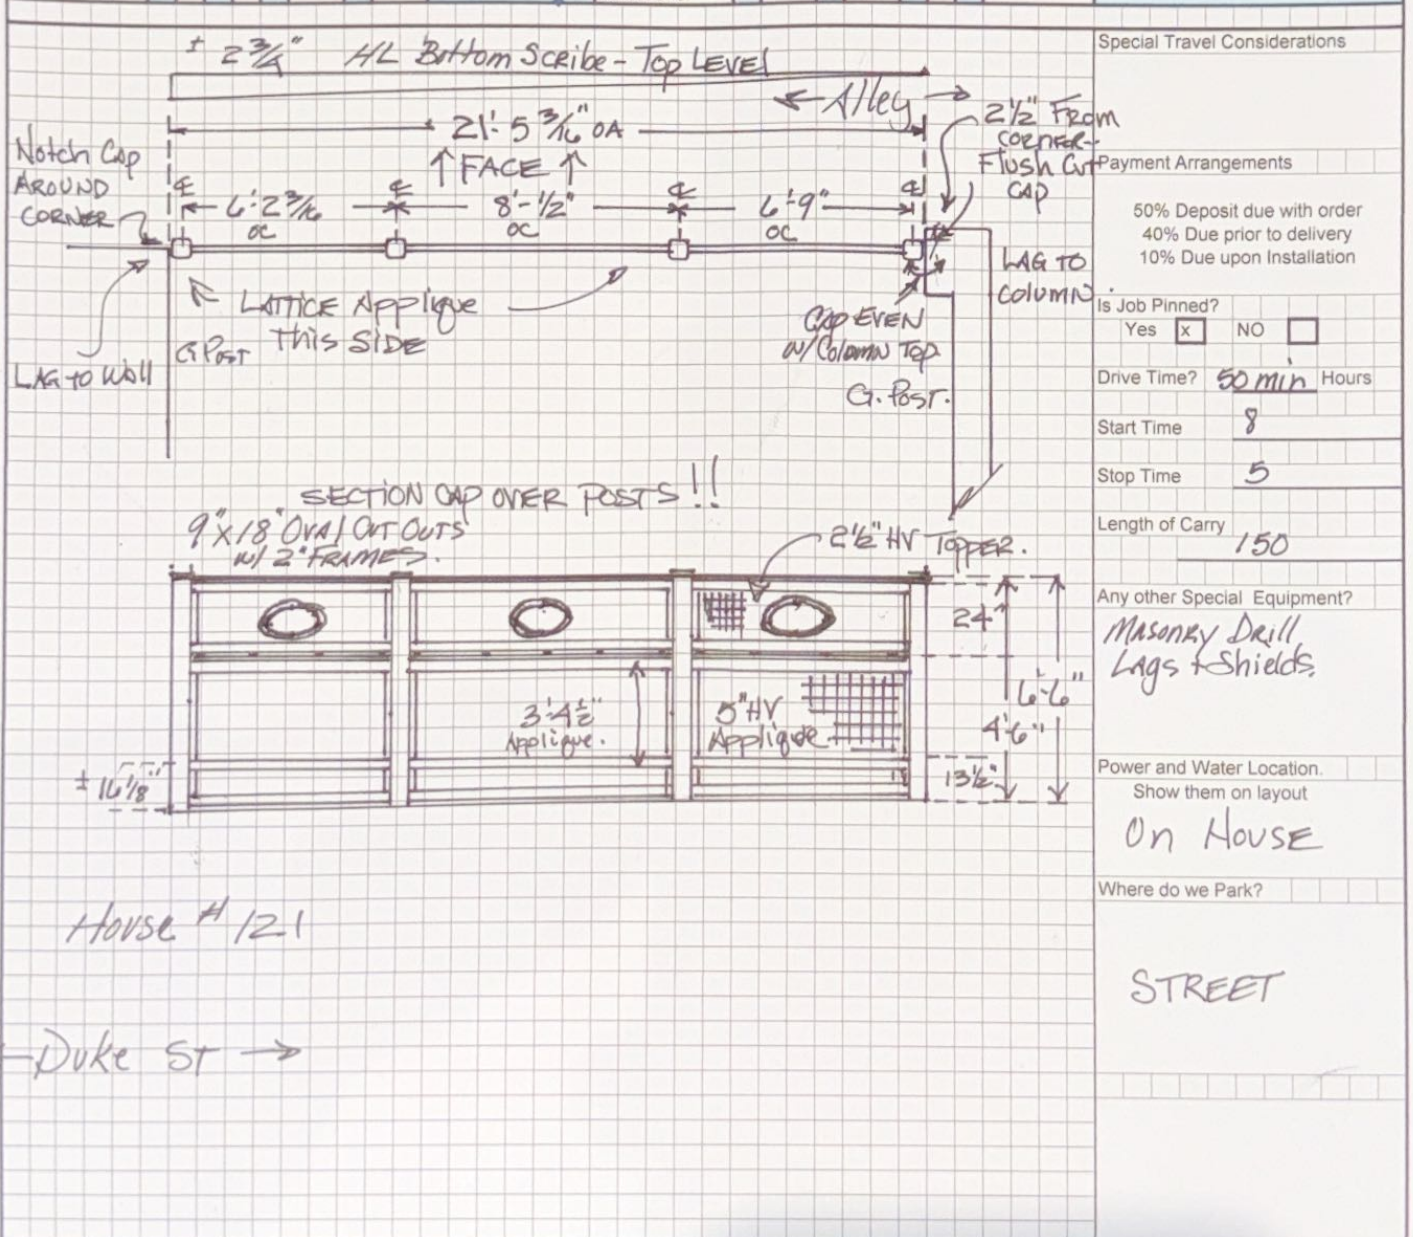 ± 2 3/4" HL Bottom Scribe - Top LEVEL
← Alley →
21'-5 3/16" OA
↑ FACE ↑
Notch Cap
AROUND
CORNER
2 1/2" FROM
CORNER -
Flush Cut
CAP
℄ ℄ ℄ ℄
6'-2 3/16
OC
8'-1/2"
OC
6'-9"
OC
LAG TO
COLUMN.
LATTICE Applique
This SIDE
G Post
LAG TO Wall
CAP EVEN
w/ Column Top.
G. Post.
SECTION CAP OVER POSTS!!
9" X 18" OVAL CUT OUTS
w/ 2" FRAMES.
2 1/2" HV TOPPER.
24"
6'-6"
4'-6"
13 1/2"
3'-4 1/2"
Applique.
5" HV
Applique
± 16 1/8"
House # 121
Duke St →
Special Travel Considerations
Payment Arrangements
50% Deposit due with order
40% Due prior to delivery
10% Due upon Installation
Is Job Pinned?
Yes x NO
Drive Time? 50 min Hours
Start Time 8
Stop Time 5
Length of Carry 150
Any other Special Equipment?
MASONRY DRILL
LAGS + SHIELDS.
Power and Water Location.
Show them on layout
On HOUSE
Where do we Park?
STREET